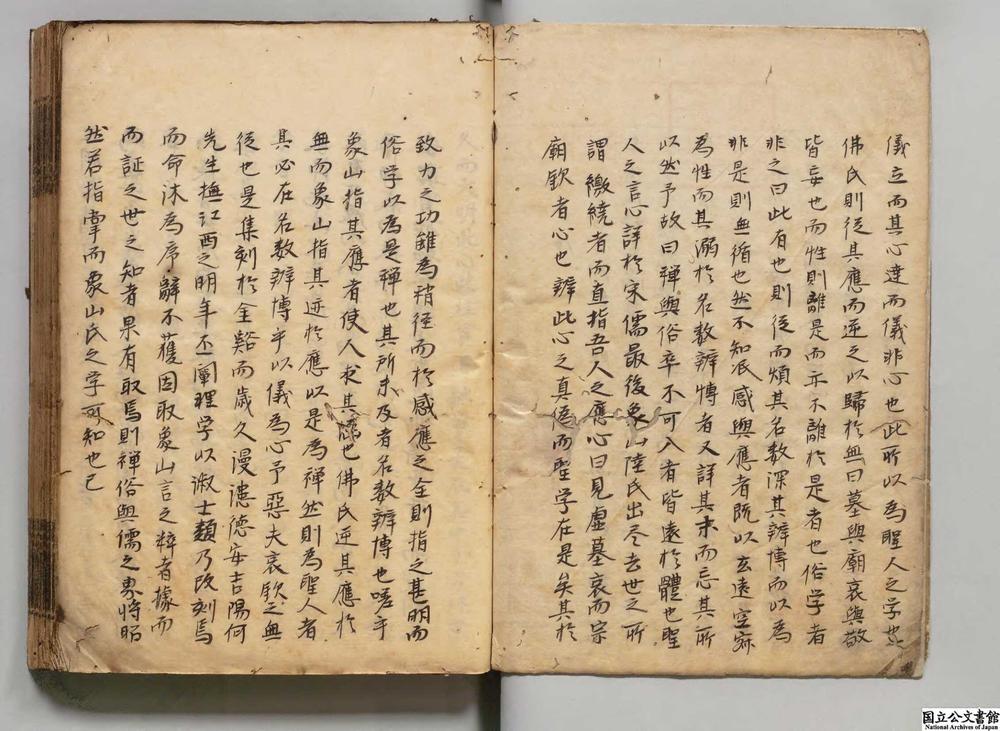 儀立而其心達而儀非心也此所以為聖人之学也
佛氏則従其應而逆之以歸於無曰墓與廟哀與敬
皆妄也而性則離是而亦不離於是者也俗学者
非之曰此有也則従而煩其名数深其辨博而以為
非是則無循也然不知底感與應者既以玄遠空寂
為性而其溺於名数辨博者又詳其末而忘其所
以然予故曰禅與俗卒不可入者皆遠於體也聖
人之言心詳於宋儒最後象山陸氏出尽去世之所
謂繳繞者而直指吾人之應心曰見虚墓哀而宗
廟欽者心也辨此心之真偽而聖学在是矣其於
致力之功雖為稍径而於感應之全則指之甚明而
俗学以為是禅也其所未及者名数辨博也嗟乎
象山指其應者使人求其也佛氏逆其應於
無而象山指其迹於應以是為禅然則為聖人者
其必在名数辨博乎以儀為心予惡夫哀欽之無
従也是集刻於金谿而歳久漫漶德安吉陽何
先生撫江西之明年丕闡理学以淑士類乃改刻焉
而命沐為序辭不獲因取象山言之粹者據而
而証之世之知者果有取焉則禅俗與儒之界将昭
然若指掌而象山氏之学可知也已
国立公文書館
National Archives of Japan